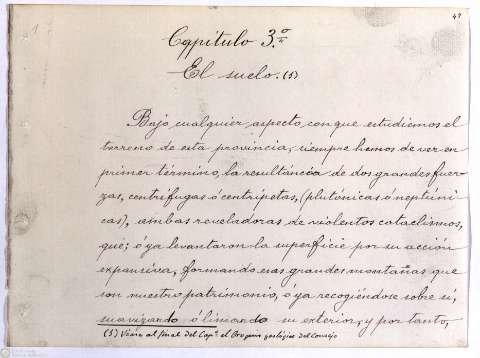 47
Capítulo 3.º
El suelo. (5)
Bajo cualquier aspecto, con que estudiemos el
terreno de esta provincia, siempre hemos de ver en
primer término, la resultáncia de dos grandes fuer-
zas, centrífugas ó centrípetas, (plutónicas ó neptúni-
cas), ambas reveladoras de violentos cataclismos,
que; ó ya levantaron la superficie por su acción
expansiva, formando esas grandes montañas que
son nuestro patrimonio, ó ya recogiéndose sobre sí,
suavizando ó limando su exterior, y por tanto,
(5) Véase al final del Capº el Croquis geológico del Concejo